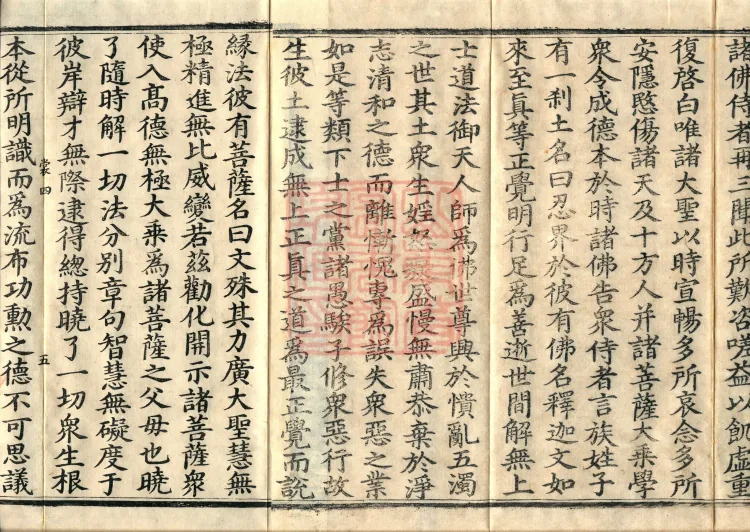 諸佛侍者再三聞此所歎咨嗟益以飢虛重
復啓白唯諸大聖以時宣暢多所哀念多所
安隱愍傷諸天及十方人并諸菩薩大乘學
衆令成德本於時諸佛告衆侍者言族姓子
有一刹土名曰忍界於彼有佛名釋迦文如
來至眞等正覺明行足爲善逝世間解無上
士道法御天人師爲佛世尊興於憒亂五濁
之世其土衆生婬怒衆盛慢無肅恭棄於淨
志清和之德而離慚愧專爲誤失衆惡之業
如是等類下士之黨諸愚騃子修衆惡行故
生彼土逮成無上正眞之道爲最正覺而説
縁法彼有菩薩名曰文殊其力廣大聖慧無
極精進無比威變若茲勸化開示諸菩薩衆
使入髙德無極大乘爲諸菩薩之父母也曉
了隨時解一切法分别章句智慧無礙度于
彼岸辯才無際逮得緫持曉了一切衆生根
棠四
五
本從所明識而爲流布功勲之德不可思議